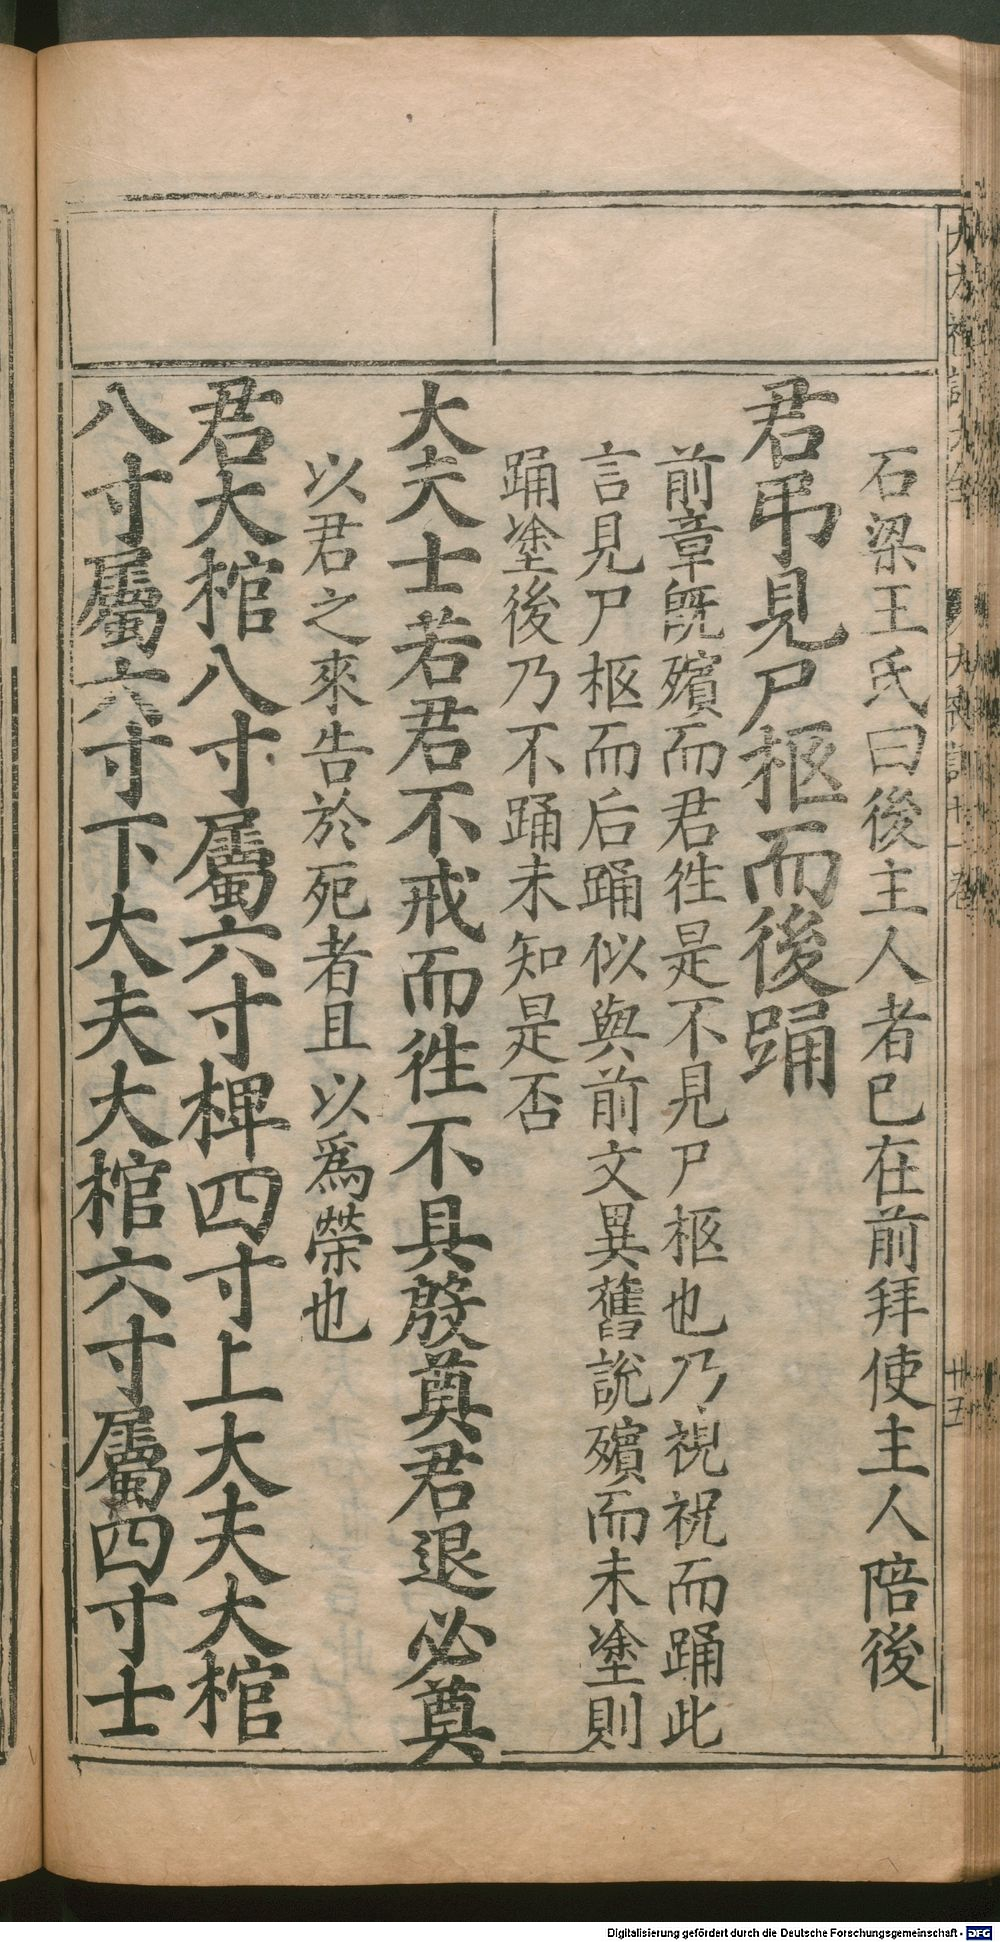 石梁王氏曰後主人者已在前拜使主人陪後
君弔見尸柩而後踊
前章旣殯而君徃是不見尸柩也乃視祝而踊此
言見尸柩而后踊似與前文異舊說殯而未塗則
踊塗後乃不踊未知是否
大夫士若君不戒而徃不具殷奠君退必奠
以君之來告於死者且以爲榮也
君大棺八寸屬六寸椑四寸上大夫大棺
八寸屬六寸下大夫大棺六寸屬四寸士
Digitalisierung gefördert durch die Deutsche Forschungsgemeinschaft - DFG